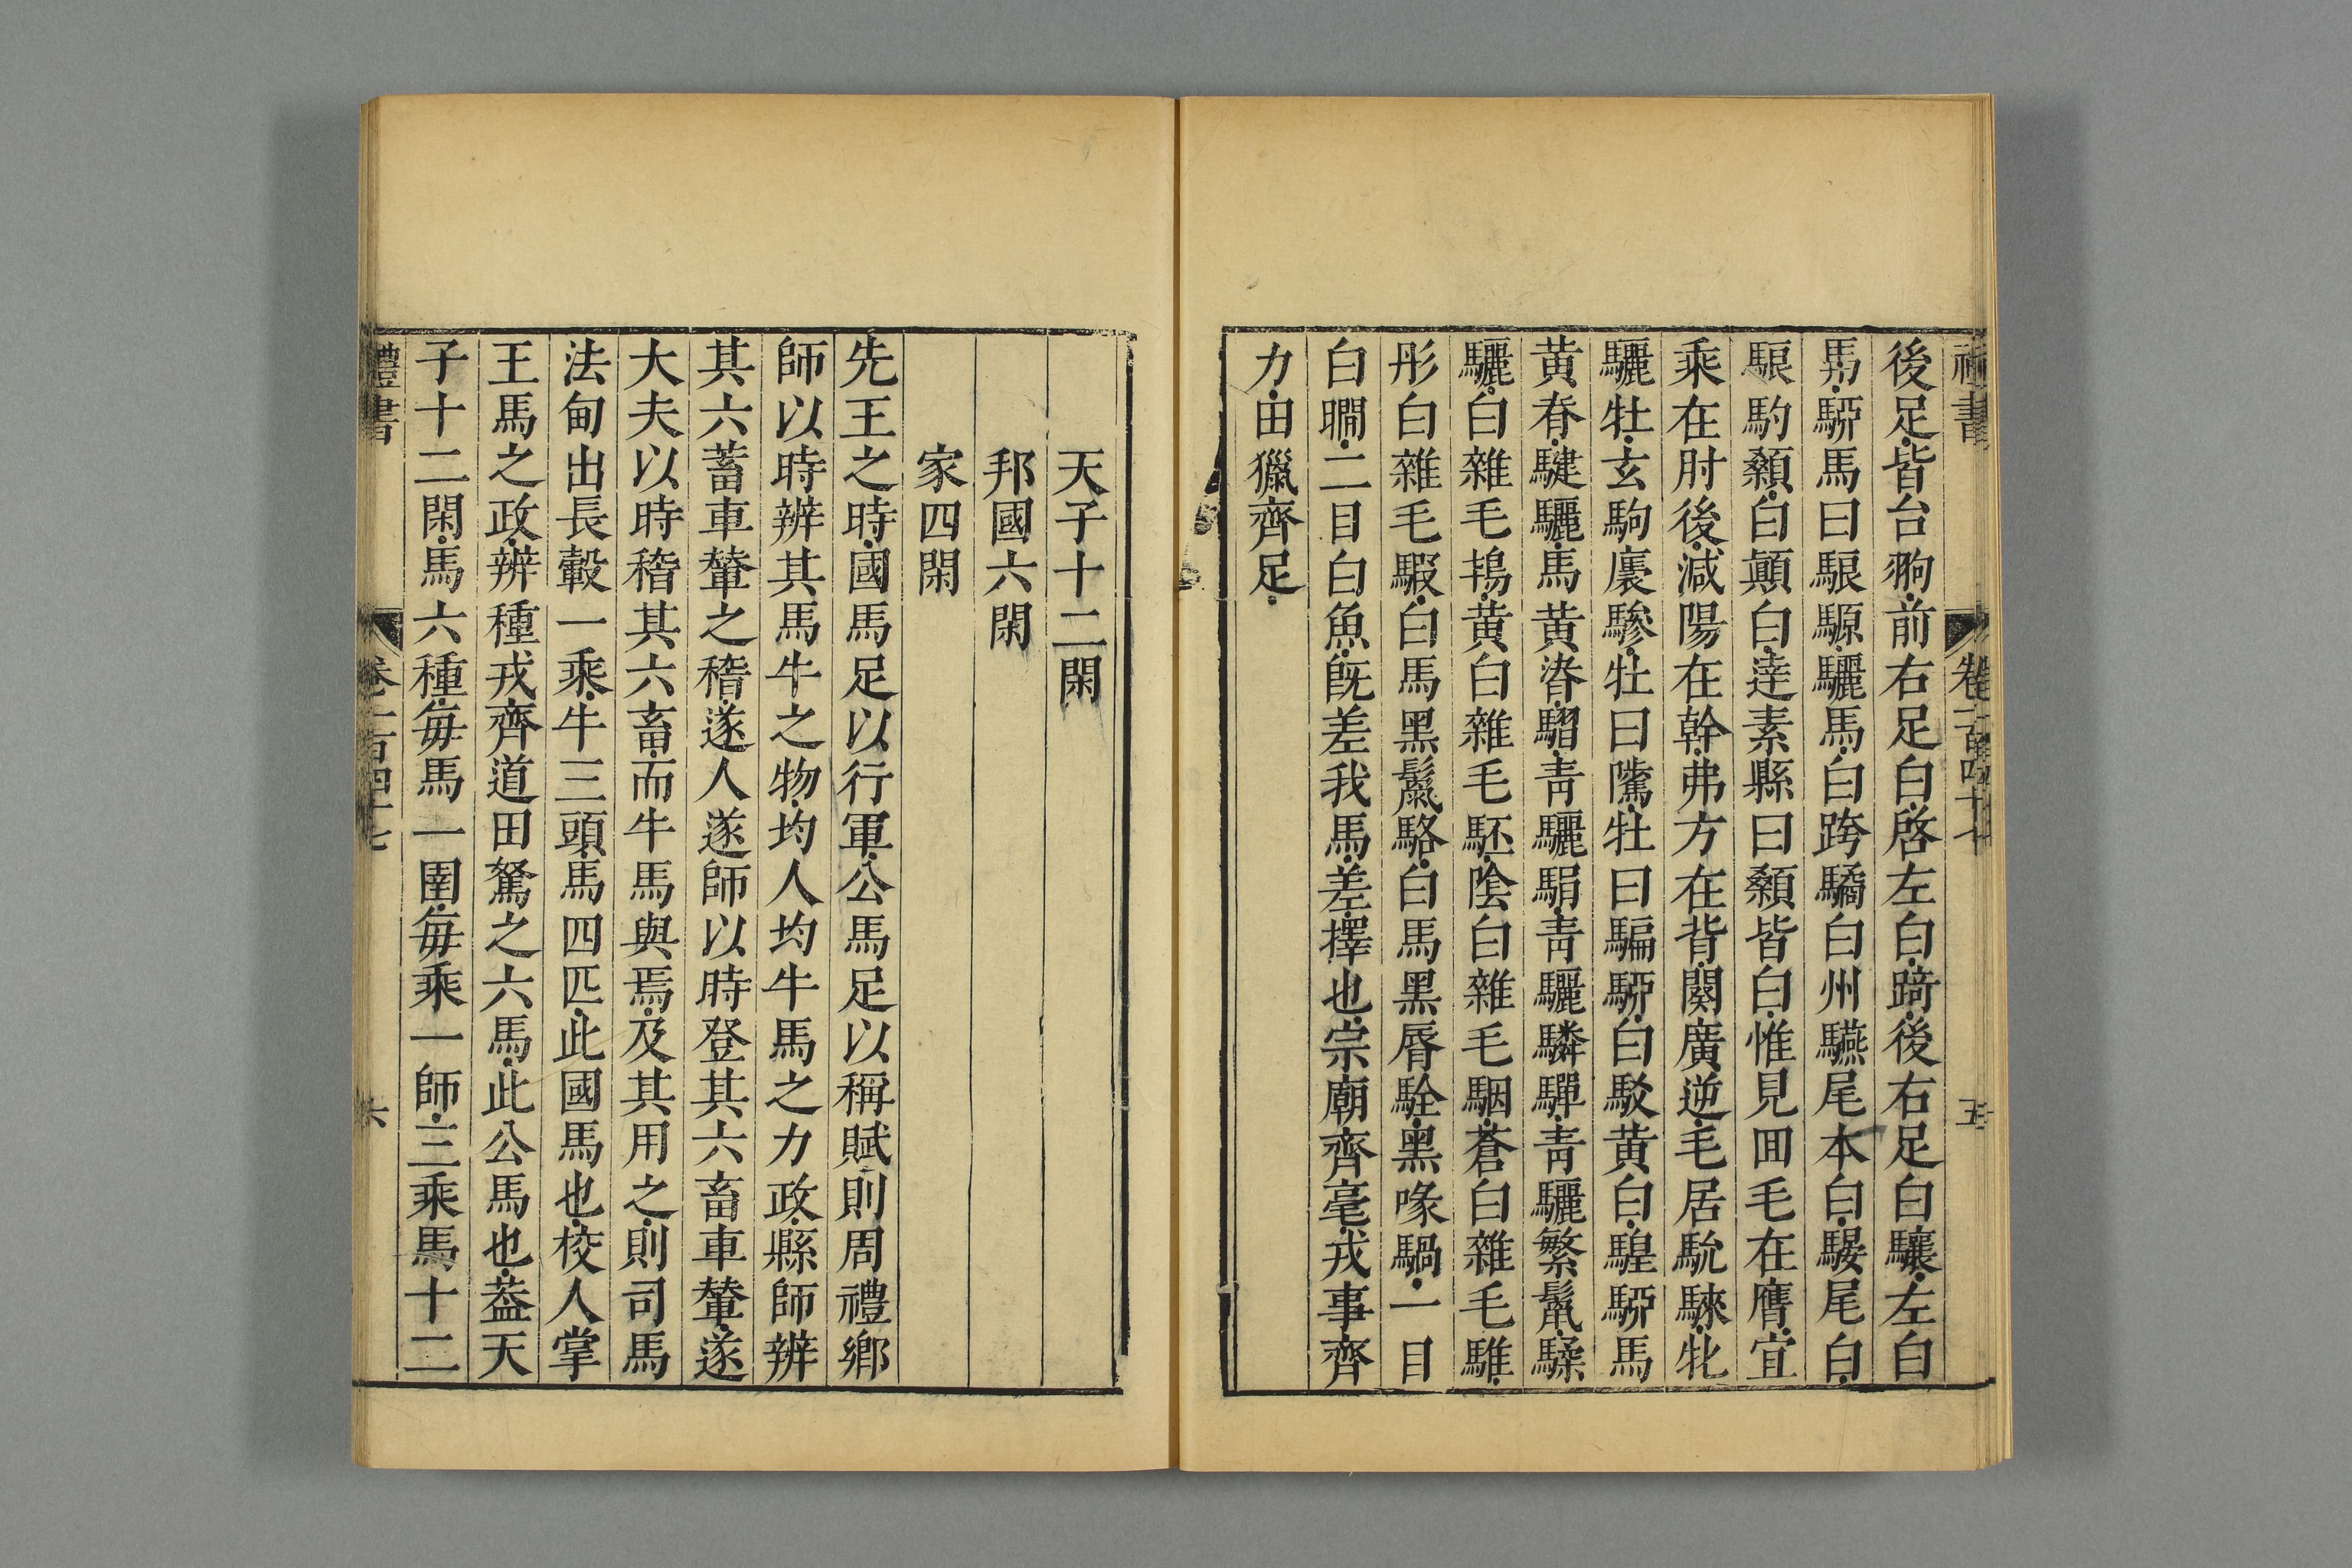 禮書 卷一百四十七 五
後足皆白翑前右足白啓左白踦後右足白驤左白
馬騂馬曰騵騵驪馬白跨驈白州驠尾本白騴尾白
駺駒顙白顛白達素縣曰顙皆白惟見回毛在膺宜
乘在肘後減陽在幹弗方在背闋廣逆毛居馻騋牝
驪牡玄駒褭驂牡曰騭牝曰騇騂白駁黃白騜騂馬
黃脊騝驪馬黃脊騽青驪駽青驪驎驒青驪繁鬣騥
驪白雜毛鴇黃白雜毛駓陰白雜毛駰蒼白雜毛騅
彤白雜毛騢白馬黑鬣駱白馬黑脣駩黑喙騧一目
白瞯二目白魚旣差我馬差擇也宗廟齊毫戎事齊
力田獵齊足
天子十二閑
邦國六閑
家四閑
先王之時國馬足以行軍公馬足以稱賦則周禮鄉
師以時辨其馬牛之物均人均牛馬之力政縣師辨
其六蓄車輦之稽遂人遂師以時登其六畜車輦遂
大夫以時稽其六畜而牛馬與焉及其用之則司馬
法甸出長轂一乘牛三頭馬四匹此國馬也校人掌
王馬之政辨種戎齊道田駑之六馬此公馬也葢天
子十二閑馬六種每馬一圉每乘一師三乘馬十二
禮書 卷一百四十七 六